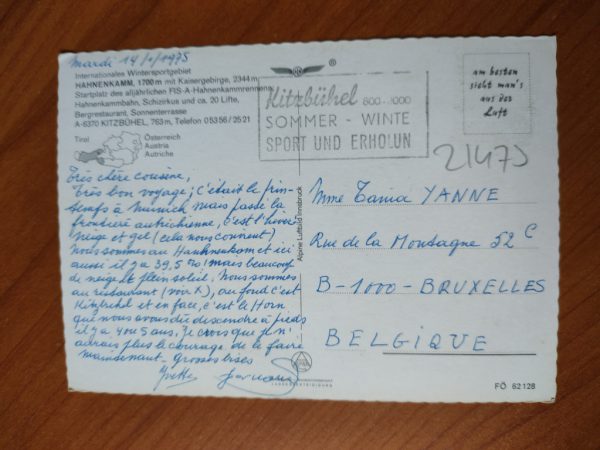 Mardi 14/1/1975
Internationales Wintersportgebiet
HAHNENKAMM, 1700 m mit Kaisergebirge, 2344 m
Startplatz des alljährlichen FIS-A-Hahnenkammrennens
Hahnenkammbahn, Schizirkus und ca. 20 Lifte,
Bergrestaurant, Sonnenterrasse
A-6370 KITZBÜHEL, 763 m, Telefon 0 53 56 / 25 21
Tirol
Österreich
Austria
Autriche
Très chère cousine,
Très bon voyage; C'était le prin-
temps à Munich mais passé la
frontière autrichienne, c'est l'hiver
neige et gel (cela nous connent)
Nous sommes au Hahnenkam et ici
aussi il y a 39,5 mais beaucoup
de neige et plein soleil. Nous sommes
au restaurant (voir X), au fond c'est
Kitzbühel et en face, c'est le Horn
que nous avons dû descendre à pieds
il y a 4 ou 5 ans. Je crois que je n'
aurais plus le courage de le faire
maintenant. grosses bises
Yvette
Alpine Luftbild Innsbruck
®
Kitzbühel 800-2000
SOMMER - WINTE
SPORT UND ERHOLUN
am besten
sieht man's
aus der
Luft
21475
Mme Tania YANNE
Rue de la Montagne 52 C
B-1000-BRUXELLES
BELGIQUE
FÖ 62128